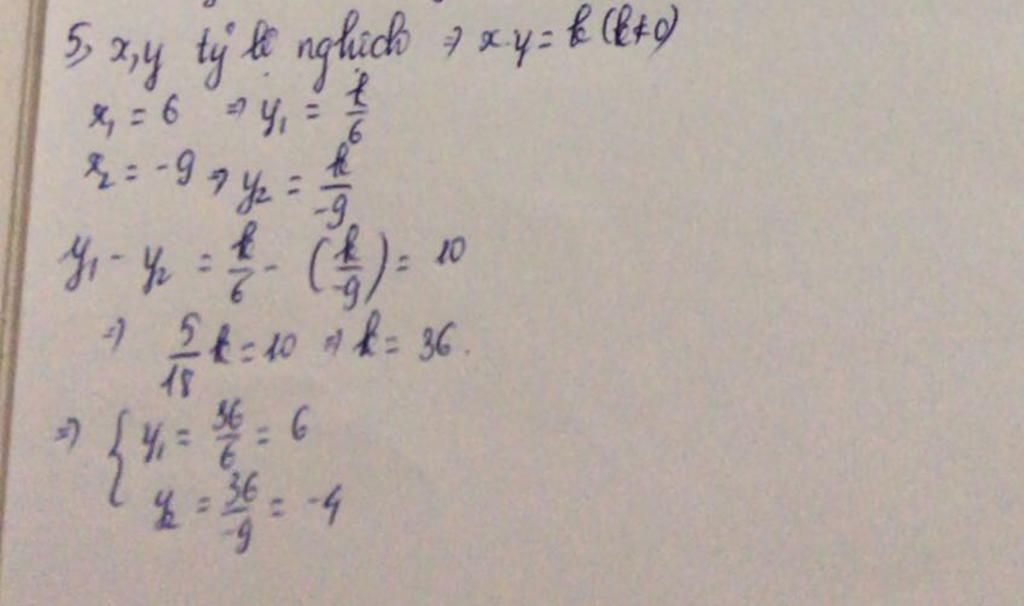 5, x,y tỷ lệ nghịch => x.y = k (k≠0)
x₁ = 6 => y₁ = k/6
x₂ = -9 => y₂ = k/-9
y₁ - y₂ = k/6 - (k/-9) = 10
=> 5/18 k = 10 => k = 36.
=> { y₁ = 36/6 = 6
y₂ = 36/-9 = -4